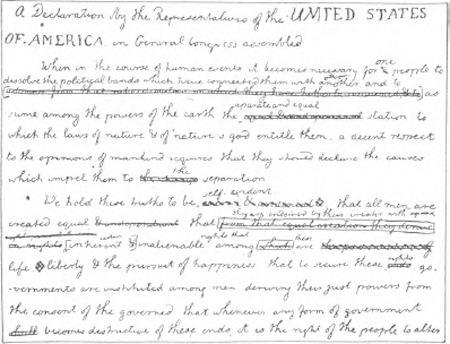 A Declaration by the Representatives of the UNITED STATES
OF AMERICA in General Congress assembled
When in the course of human events it becomes necessary for one people to
dissolve the political bands which have connected them with another, and to
as
separate and equal
sume among the powers of the earth the station to
which the laws of nature & of nature's god entitle them, a decent respect
to the opinions of mankind requires that they should declare the causes
the
which impel them to separation
self evident
We hold these truths to be that all men are
they are endowed by their creator with
created equal & independent that from that equal creation they derive
rights that them
[inherent & inalienable among which are
rights
life liberty & the pursuit of happiness that to secure these go-
vernments are instituted among men deriving their just powers from
the consent of the governed that whenever any form of government
becomes destructive of these ends, it is the right of the people to alter